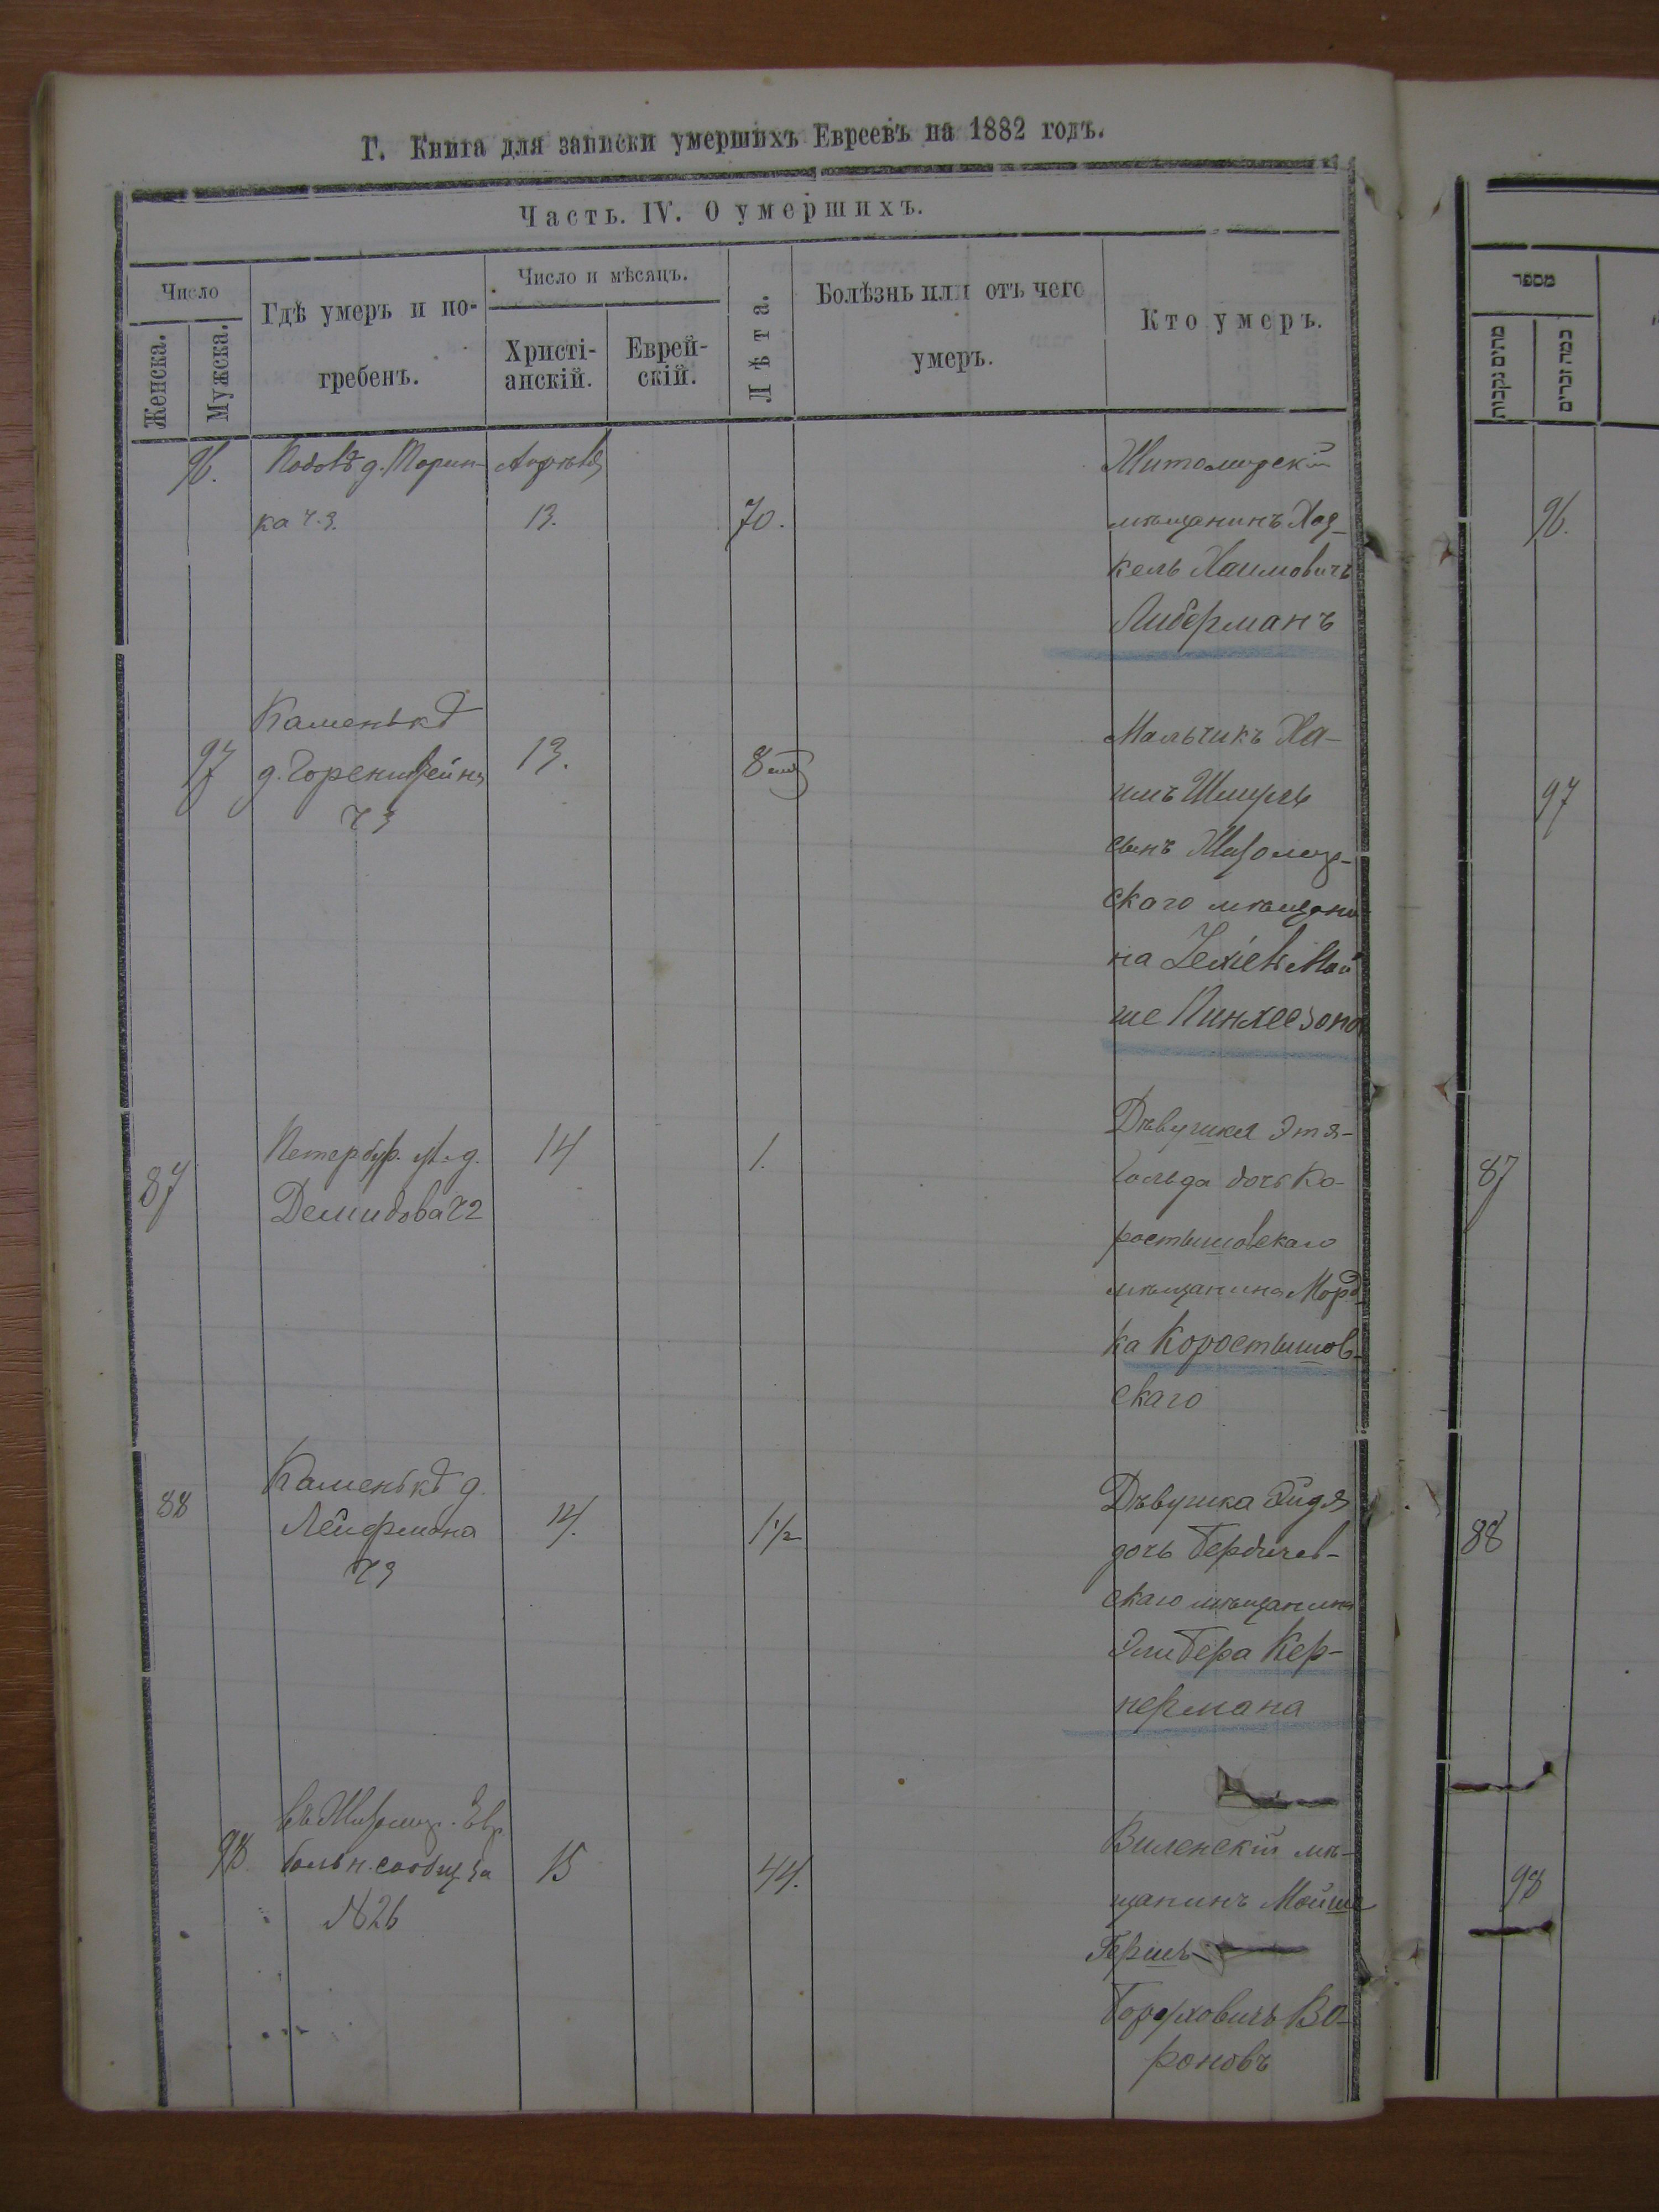 Г. Книга для записки умершихъ Евреевъ на 1882 годъ.
Часть. IV. О умершихъ.
Число
Женска.
Мужска.
Гдѣ умеръ и по-
гребенъ.
Число и мѣсяцъ.
Христі-
анскій.
Еврей-
скій.
Лѣта.
Болѣзнь или отъ чего
умеръ.
Кто умеръ.
96.
д.
ка ч. 3.
Апрѣля
13.
70.
Житомирскій
мѣщанинъ
кель Хаимовичъ
Либерманъ
97
Каменькѣ
д. Горенштейна
ч 3
13.
8
Мальчикъ Ха-
имъ Шмуль
сынъ Житомир-
скаго мѣщани-
на Мой
ше Пинхесзона
87
Петербур. ул. д.
Демидова ч 2
14
1.
Дѣвушка Этя-
Гольда дочь Ко-
ростышовскаго
мѣщанина Морд-
ка Коростышов-
скаго
88
Каменькѣ д.
Лейфмана
ч 3
14.
1 1/2
Дѣвушка Эйдя
дочь Бердичев-
скаго мѣщанина
Эли Бера Кер-
нермана
98
въ Житомир. Евр.
больн. сообщ. за
№ 26
15
44.
Виленскій мѣ-
щанинъ Мойше
Гершъ
Боруховичъ Во-
роновъ
מספר
מתים נקבות
כמה זכרים
96.
97
87
88
98